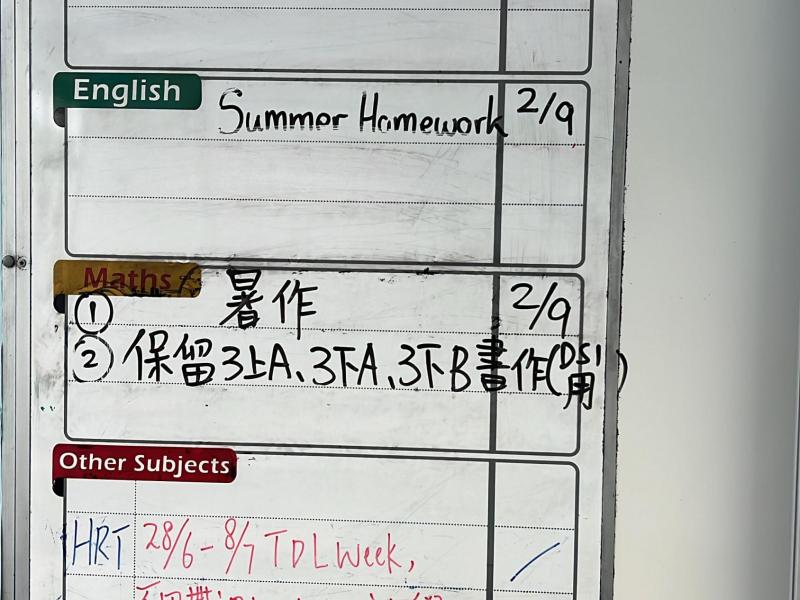 English
Summer Homework 2/9
Maths
① 暑作 2/9
② 保留3上A、3下A、3下B書作(DSI用)
Other Subjects
HRT 28/6-8/7 TDL Week,